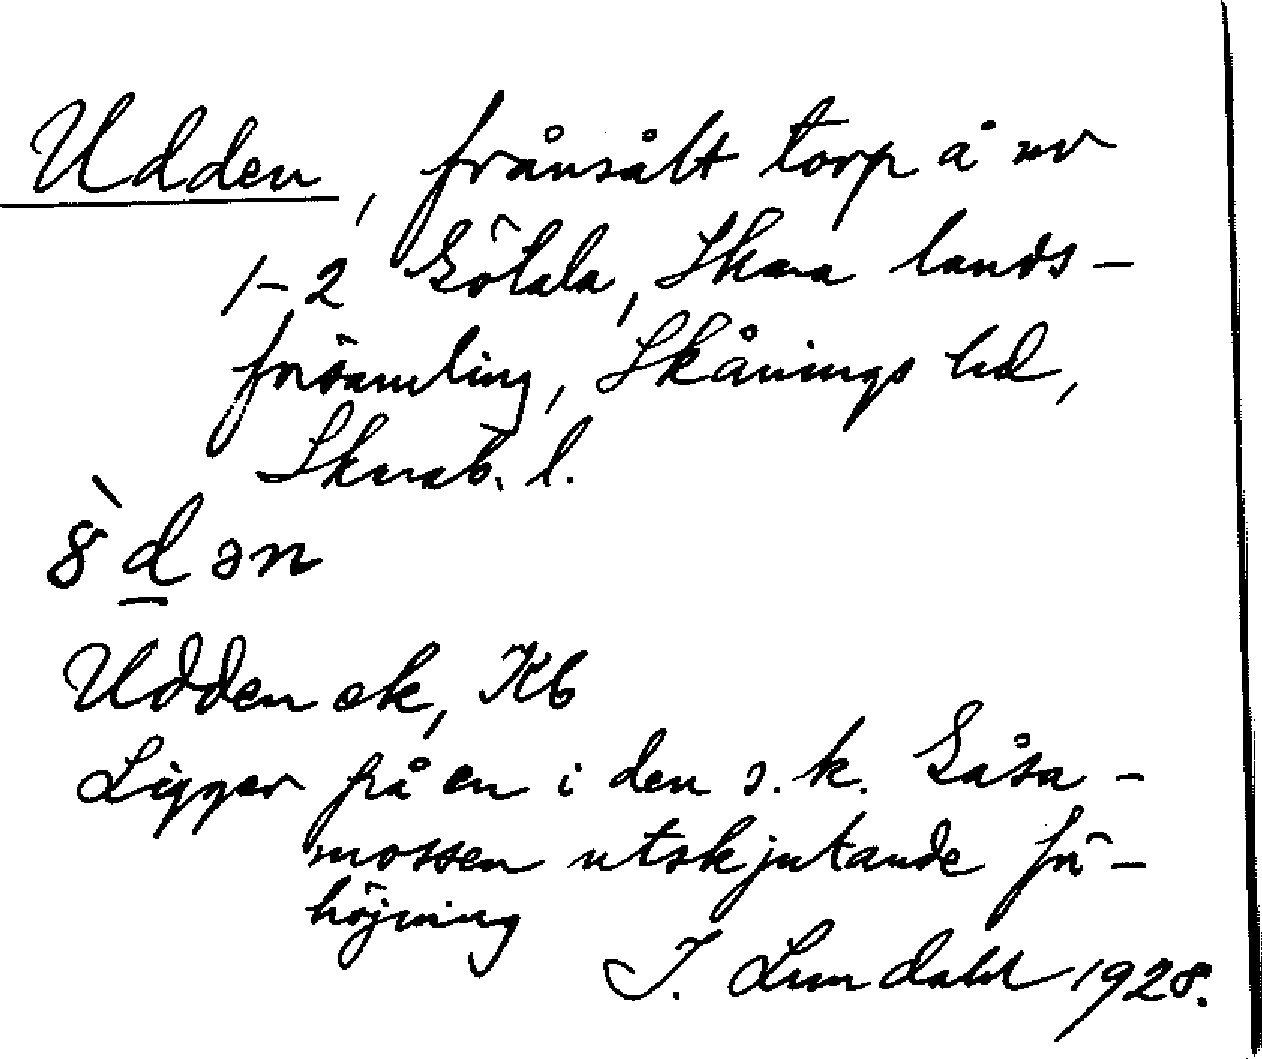 Udden, frånsålt torp å nr
1-2 Götala, Skara lands-
församling, Skånings hd,
Skarab. l.
ȣ̀d̲ən
Udden ek, Kb
Ligger på en i den s.k. Gåsa-
mossen utskjutande för-
höjning
I. Lundahl 1928.